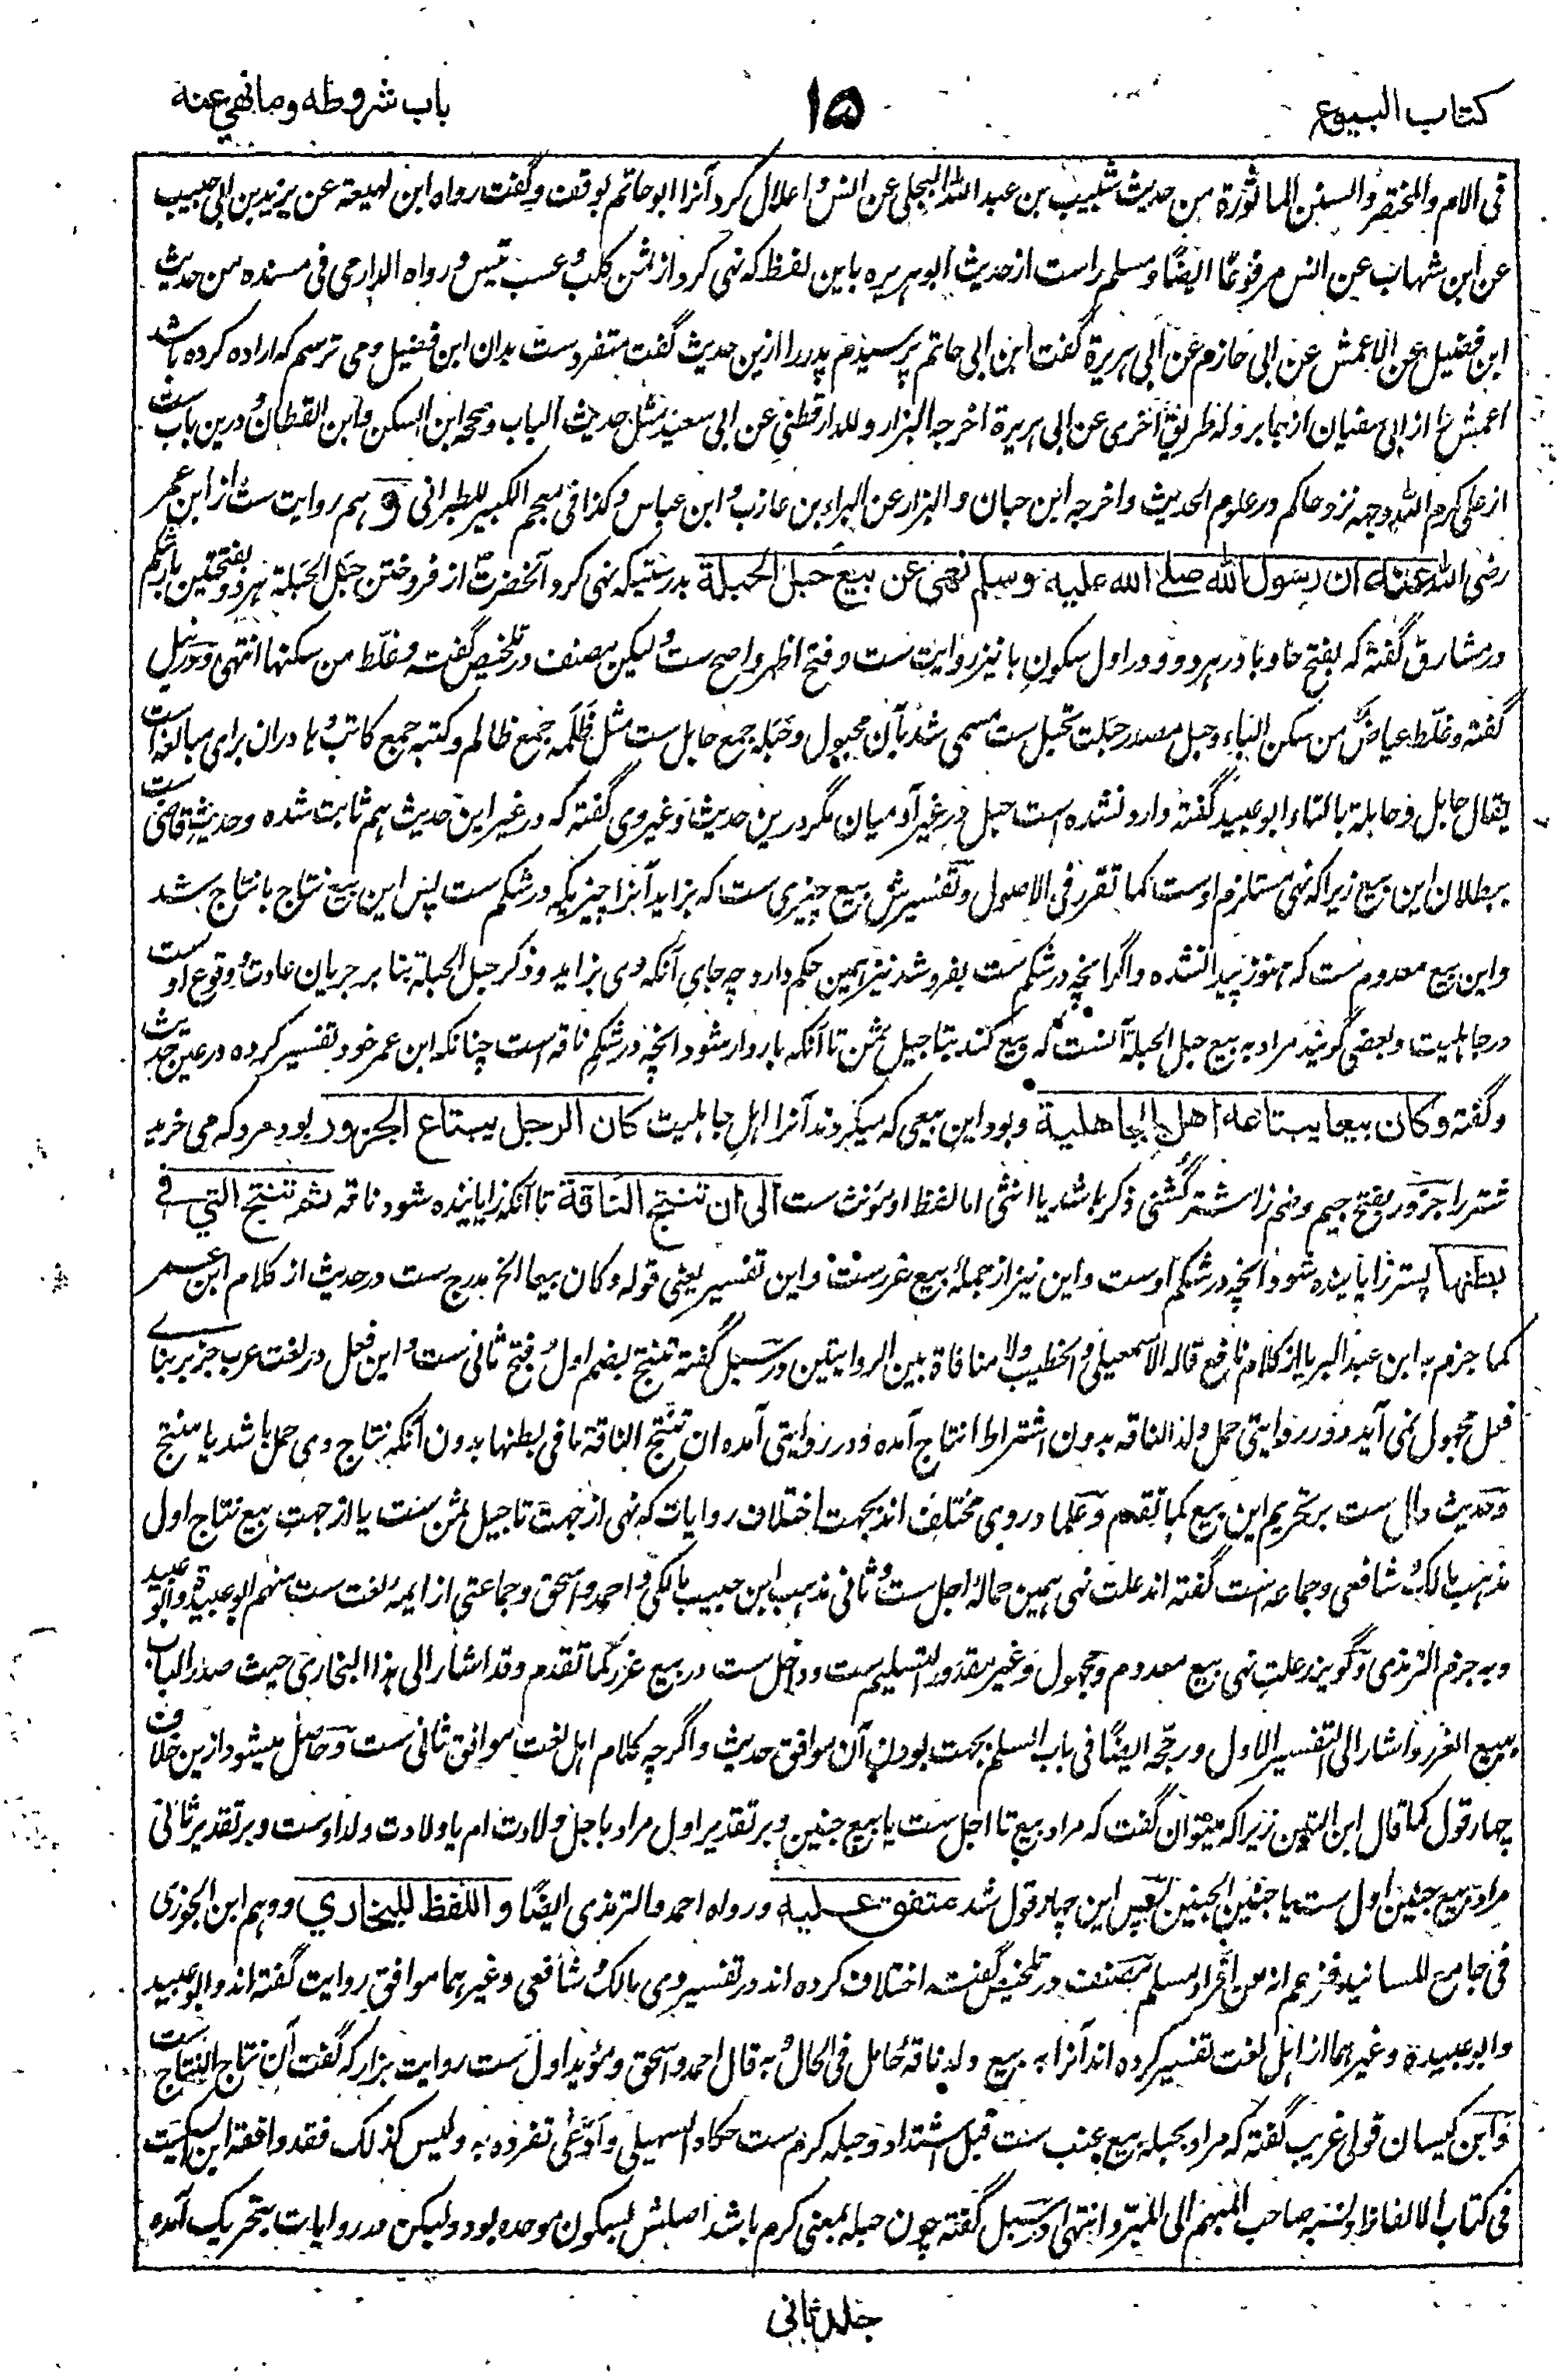 كتاب البيوع
١٥
باب شروطه وما نهي عنه
فی الام والمختصر والسنن الماثورة من حدیث شبیب بن عبد الله البجلی عن انس و اعلال کرد آنرا ابو حاتم بوقف و گفت رواه ابن لهیعة عن یزید بن ابی حبیب
عن ابن شهاب عن انس مرفوعًا ایضًا و مسلم راست از حدیث ابو هریره باین لفظ که نهی کرد از ثمن کلب و عسب تیس و رواه الدارمی فی مسنده من حدیث
ابن فضیل عن الاعمش عن ابی حازم عن ابی هریرة گفت ابن ابی حاتم پرسیدم پدر را ازین حدیث گفت متفردست بدان ابن فضیل و می ترسم که اراده کرده باشد
اعمش از ابی سفیان از جابر وله طریق اخری عن ابی هریرة اخرجه البزار و للدارقطنی عن ابی سعید مثل حدیث الباب و صححه ابن السکن و ابن القطان و درین باب ست
از علی کرم الله وجهه نزد حاکم در علوم الحدیث و اخرجه ابن حبان و البزار عن البراء بن عازب و ابن عباس و کذا فی معجم الکبیر للطبرانی و هم روایت ست از ابن عمر
رضی الله عنه ان رسول الله صلے الله علیه وسلم نهی عن بیع حبل الحبلة بدرستیکه نهی کرد آنحضرت از فروختن حبل الحبلة هر دو بفتحتین بار شکم
در مشارق گفته که بفتح حا و با در هر دو و در اول بسکون با نیز روایت ست و فتح اظهر و اصح ست و لیکن مصنف در تلخیص گفته و غلّط من سکنها انتهی و در نیل
گفته و غلّط عیاض من سکن الباء و حبل مصدر حبلت تحبل ست مسمی شد بآن محبول و حَبَله جمع حابل ست مثل ظَلَمه جمع ظالم و کتبه جمع کاتب و ها در ان برای مبالغه است
یقال حابل و حابلة بالتاء ابو عبید گفته وارد نشده است حبل در غیر آدمیان مگر درین حدیث و غیر وی گفته که در غیر این حدیث هم ثابت شده و حدیث قاضی ست
ببطلان این بیع زیرا که نهی مستلزم اوست کما تقرر فی الاصول و تفسیرش بیع چیزی ست که بزاید آنرا چیزیکه در شکم ست پس این بیع نتاج با نتاج باشد
و این بیع معدوم ست که هنوز پیدا نشده و اگر انچه در شکم ست بفروشد نیز همین حکم دارد چه جای آنکه وی بزاید و ذکر حبل الحبلة بنا بر جریان عادت و وقوع او ست
در جاهلیت و بعضی گویند مراد به بیع حبل الحبلة آنست که بیع کند بتاجیل ثمن تا آنکه باردار شود انچه در شکم ناقه است چنانکه ابن عمر خود تفسیر کرده در عین حدیث
و گفته وکان بیعا یبتاعه اهل الجاهلیة و بود این بیعی که میکردند آنرا اهل جاهلیت کان الرجل یبتاع الجزور بود مرد که می خرید
شتر را جزور بفتح جیم و ضم زا شتر کُشتنی ذکر باشد یا انثی اما لفظ او مؤنث ست الی ان تنتج الناقة تا آنکه زایانیده شود ناقه ثم تنتج التي في
بطنها پستر زایانیده شود انچه در شکم اوست و این نیز از جملهٔ بیع غررست و این تفسیر یعنی قوله وکان بیعا الخ مدرج ست در حدیث از کلام ابن عمر
کما جزم به ابن عبد البر یا از کلام نافع قاله الاسمعیلی و الخطیب ولا منافاة بین الروایتین و در سبل گفته تنتج بضم اول و فتح ثانی ست و این فعل در لغت عرب جز بر بنای
فعل مجهول نمی آید و در روایتی حمل ولد الناقه بدون اشتراط انتاج آمده و در روایتی آمده ان تنتج الناقة ما فی بطنها بدون آنکه نتاج وی حمل باشد یا منتج
و حدیث دال ست بر تحریم این بیع کما تقدم و علما در وی مختلف اند بجهت اختلاف روایات که نهی از جهت تاجیل ثمن ست یا از جهت بیع نتاج اول
مذهب مالک و شافعی و جماعه است گفته اند علت نهی همین جهالهٔ اجل ست و ثانی مذهب ابن حبیب مالکی و احمد و اسحق و جماعتی از ایمهٔ لغت ست منهم ابو عبیدة و ابو عبید
و به جزم الترمذی و گویند علت نهی بیع معدوم و مجهول و غیر مقدور التسلیم ست و داخل ست در بیع غرر کما تقدم و قد اشار الی هذا البخاری حیث صدر الباب
ببیع الغرر و اشار الی التفسیر الاول و رجحه ایضًا فی باب السلم بجهت بودن آن موافق حدیث و اگر چه کلام اهل لغت موافق ثانی ست و حاصل میشود ازین خلاف
چهار قول کما قال ابن التین زیرا که میتوان گفت که مراد بیع تا اجل ست یا بیع جنین و بر تقدیر اول مراد باجل ولادت ام یا ولادت ولد اوست و بر تقدیر ثانی
مراد بیع جنین اول ست یا جنین الجنین پس این چهار قول شد متفق علیه و رواه احمد و الترمذی ایضًا و اللفظ للبخاري و وهم ابن الجوزی
فی جامع المسانید فزعم انه من افراد مسلم مصنف در تلخیص گفته اختلاف کرده اند در تفسیر وی مالک و شافعی و غیرهما موافق روایت گفته اند و ابو عبید
و ابو عبیده و غیرهما از اهل لغت تفسیر کرده اند آنرا به بیع ولد ناقهٔ حامل فی الحال و به قال احمد و اسحق و مؤید اول ست روایت بزار که گفت آن نتاج النتاج ست
و ابن کیسان قولی غریب گفته که مراد بحبله بیع عنب ست قبل اشتداد و حبله کرم ست حکاه السهیلی و ادّعی تفرده به و لیس کذلک فقد وافقه ابن السکیت
فی کتاب الالفاظ و نسبه صاحب المفهم الی المبرّد انتهی در سبل گفته چون حبله بمعنی کرم باشد اصلش بسکون موحده بود و لیکن در روایات بتحریک آمده
جلد ثانی